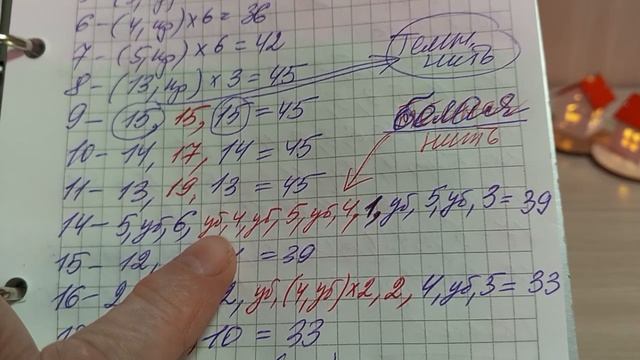 6 - (4, пр) × 6 = 36
7 - (5, пр) × 6 = 42
8 - (13, пр) × 3 = 45
Темн. нить
9 - 15, 15, 15 = 45
белая
нить
10 - 14, 17, 14 = 45
11 - 13, 19, 13 = 45
14 - 5, уб, 6, уб, 4, уб, 5, уб, 4, 1, уб, 5, уб, 3 = 39
15 - 12, = 39
16 - 2 2, уб, (4, уб) × 2, 2, 4, уб, 5 = 33
10 = 33